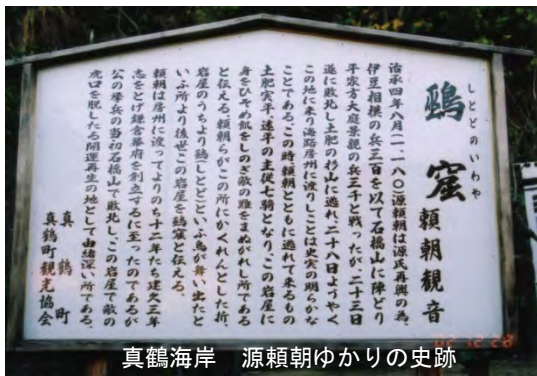 しとどのいわや
鵐窟 頼朝観音
治承四年八月(一一八〇)源頼朝は源氏再興の為、
伊豆相模の兵三百を以て石橋山に陣どり
平家方大庭景親の兵三千と戦ったが二十三日
遂に敗北し土肥の杉山に逃れ、二十八日ようやく
この地に来り海路房州に渡りしことは史実の明らかな
ことである。この時頼朝とともに逃れて来るもの
土肥実平、遠平の主従七騎となり、この岩屋に
身をひそめ飢をしのぎ敵の難をまぬがれし所である
と伝える。頼朝らがこの所にかくれんとした折、
岩屋のうちより鵐(しとど)という鳥が舞い出たと
いふ所より後世この岩屋を鵐窟と伝える。
頼朝は房州に渡ってよりのち十二年たち建久三年
志をとげ鎌倉幕府を創立するに至ったのであるが
公の挙兵の当初石橋山で敗北し、この岩屋で敵の
虎口を脱したる開運再生の地として由緒深い所である。
真鶴町
真鶴町観光協会
02 12 28
真鶴海岸 源頼朝ゆかりの史跡